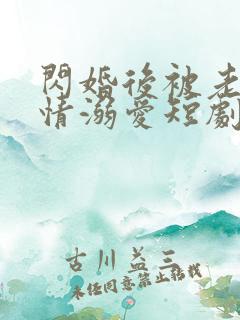 閃婚後被老
情溺愛短劇
古川益三
未任同意禁止轉載